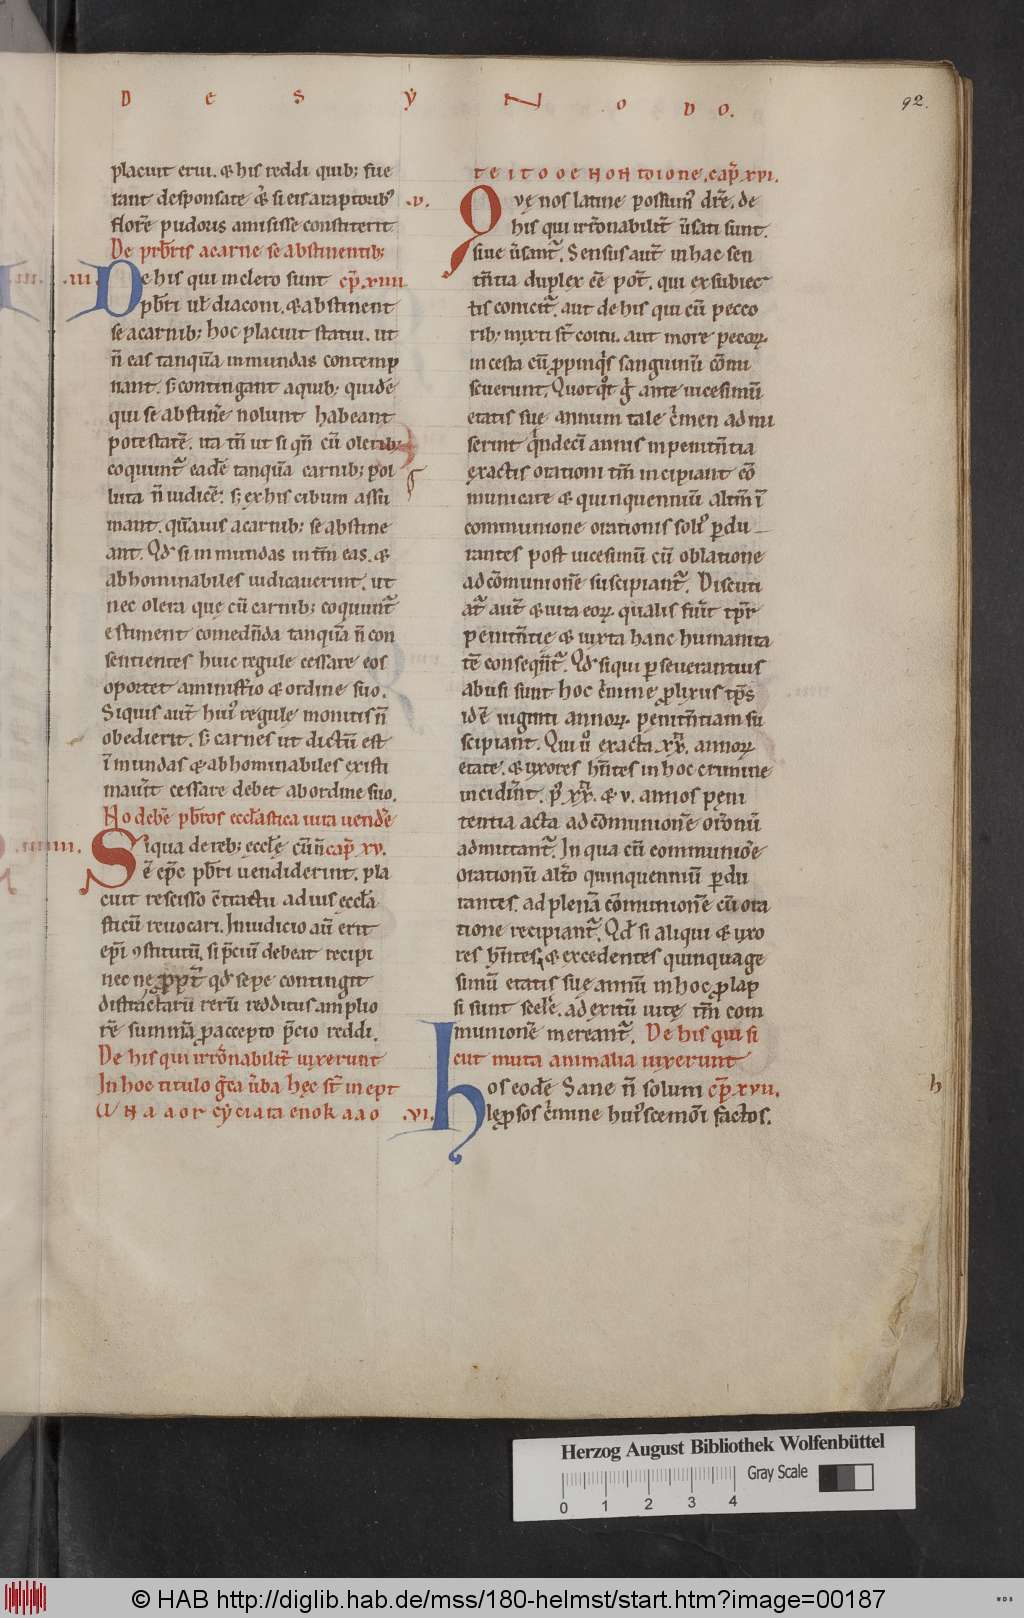 D E S Y N O D O.
92.
placuit erui. & his reddi quib; fue
rant desponsate & si eis a raptorib'
florē pudoris amisisse constiterit
.v.
De prb̄ris a carne se abstinentib;
.iii.
De his qui in clero sunt cp̄. xiiii
pb̄ri ul̄ diaconi. & abstinent
se a carnib; hoc placuit statui. ut
n̄ eas tanquā inmundas contemp
nant. s; contingant a quib; quidē
qui se abstinē nolunt habeant
potestatē. ita tn̄ ut si qn̄ cū olerib;
coquunt̄ eadē tanquā carnib; pol
luta n̄ iudicē. s; ex his cibum assu
mant. quāuis a carnib; se abstine
ant. Qd̄ si in mundas in tm̄ eas. &
abhominabiles iudicauerint. ut
nec olera quę cū carnib; coquunt̄
estiment comedn̄da tanquā n̄ con
sentientes huic regule cessare eos
oportet a ministerio & ordine suo.
Siquis aut̄ hui' regule monitis n̄
obedierit. s; carnes ut dictū est
īmundas & abhominabiles existi
mauīt cessare debet ab ordine suo.
No debē pb̄ros eccl̄astica iura uendē
.iiiii.
Siqua de reb; eccl̄ę cū n̄ cap̄. xv.
ē ep̄c pb̄ri uendiderint. pla
cuit rescisso c̄tractu ad ius eccl̄a
sticū reuocari. In iudicio aū erit
ep̄i 9stitutū. si p̄ciū debeat recipi
nec ne propt̄ qd̄ sepe contingit
distractarū rerū redditus amplio
rē summā pro accepto p̄cio reddi.
De his qui irrōnabilit̄ uixerunt
In hoc titulo gr̄ca ūba hęc st̄ inept
.vi.
t e i t o o e n o n
cap̄. xvi.
Quę nos latine possum' dr̄e. de
his qui irrōnabilit̄ ūsati sunt.
siue ūsant̄. Sensus aut̄ in hac sen
tn̄tia duplex eē pot̄. qui ex subiec
tis conicit̄. aut de his qui cū pecco
rib; mixti st̄ coitu. aut more pecorꝝ
incesta cū propinq's sanguinū cōmi
scuerunt. Quotq°t g° ante uicesimū
etatis suę annum tale c'men admi
serint q'ndecī annis in penitn̄tia
exactis orationi tm̄ incipiant cō
municare & quinquenniū altm̄ ī
communione orationis soli' perdu
rantes post uicesimū cū oblatione
ad cōmunionē suscipiant̄. Discuti
at̄ aut̄ & uita eorꝝ qualis fuīt tp̄r
penitn̄tię & iuxta hanc humanita
tē consequn̄t̄. Qd̄ siqui perseuerantius
abusi sunt hoc c'mine prolixius tp̄s
idē uiginti annorꝝ penitn̄tiam su
scipiant. Qui ū exacta. xx. annorꝝ
etate. & uxores hn̄tes in hoc crimine
incidīnt. p' xx. & v. annos peni
tentia acta ad cōmunionē orōnū
admittant̄. In qua cū communiōe
orationū alt̄o quinquenniū perdu
rantes. ad plenā cōmunionē cū ora
tione recipiant̄. Qd̄ si aliqui & uxo
res hn̄tes & excedentes quinquage
simū etatis suę annū in hoc prolap
si sunt scel̄e. ad exitū uitę tm̄ com
munionē mereant̄. De his qui si
cut muta animalia uixerunt
hos eodē Sane n̄ solum cp̄. xvii.
lęprosos c'mine hui'scemōi factos.
h
Herzog August Bibliothek Wolfenbüttel
Gray Scale
0 1 2 3 4
© HAB http://diglib.hab.de/mss/180-helmst/start.htm?image=00187